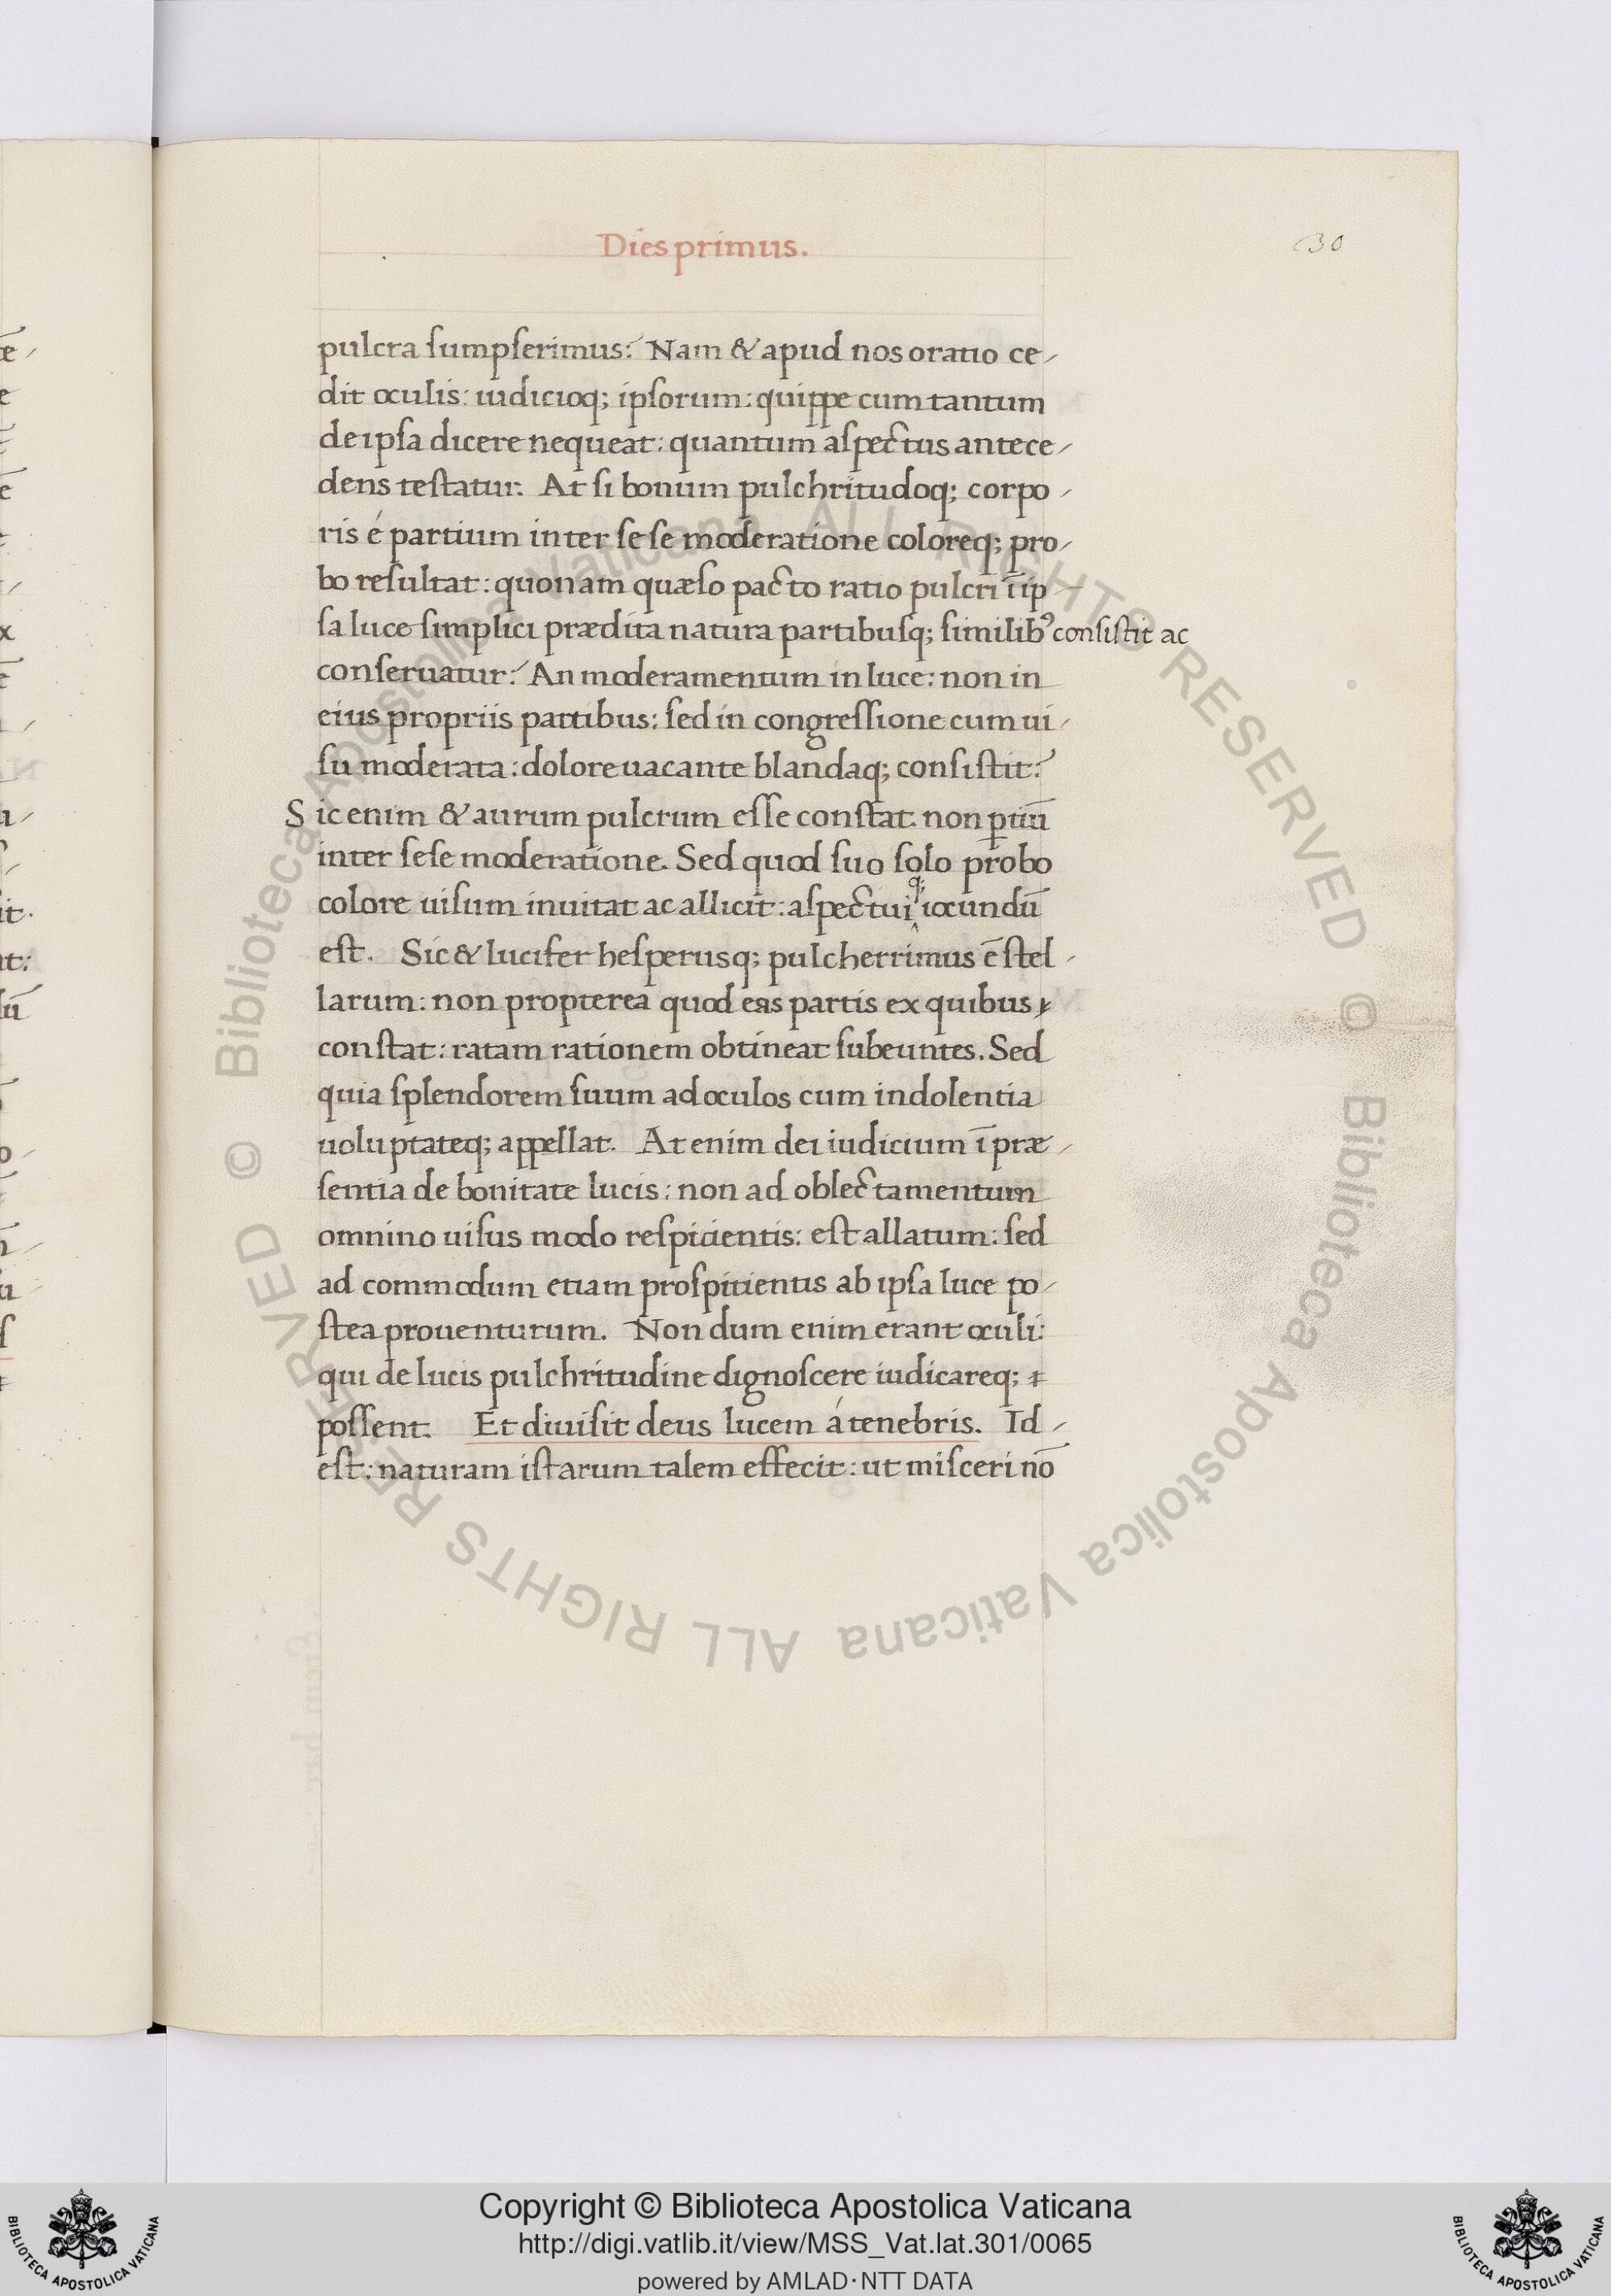 Dies primus.
30
pulcra sumpserimus? Nam & apud nos oratio ce-
dit oculis: iudicioq; ipsorum: quippe cum tantum
de ipsa dicere nequeat: quantum aspectus antece-
dens testatur. At si bonum pulchritudoq; corpo-
ris é partium inter sese moderatione coloreq; pro-
bo resultat: quonam quæso pacto ratio pulcri ī ip-
sa luce simplici prædita natura partibusq; similibꝰ consistit ac
conseruatur? An moderamentum in luce: non in
eius propriis partibus: sed in congressione cum ui-
su moderata: dolore uacante blandaq; consistit?
Sic enim & aurum pulcrum esse constat. non ꝑtiū
inter sese moderatione. Sed quod suo solo probo
colore uisum inuitat ac allicit: aspectuiq; iocundū
est. Sic & lucifer hesperusq; pulcherrimus ē stel-
larum: non propterea quod eas partis ex quibus
constat: ratam rationem obtineat subeuntes. Sed
quia splendorem suum ad oculos cum indolentia
uoluptateq; appellat. At enim dei iudicium ī præ-
sentia de bonitate lucis: non ad oblectamentum
omnino uisus modo respicientis: est allatum: sed
ad commodum etiam prospicientis ab ipsa luce po-
stea prouenturum. Non dum enim erant oculi:
qui de lucis pulchritudine dignoscere iudicareq;
possent. Et diuisit deus lucem á tenebris. Id-
est: naturam istarum talem effecit: ut misceri nō
© Biblioteca Apostolica Vaticana ALL RIGHTS RESERVED © Biblioteca Apostolica Vaticana ALL RIGHTS RESERVED
Copyright © Biblioteca Apostolica Vaticana
http://digi.vatlib.it/view/MSS_Vat.lat.301/0065
powered by AMLAD·NTT DATA
BIBLIOTECA APOSTOLICA VATICANA
BIBLIOTECA APOSTOLICA VATICANA